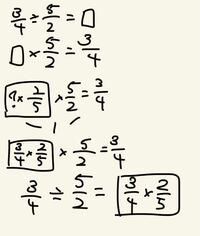 3/4 ÷ 5/2 = □
□ × 5/2 = 3/4
? × 2/5 × 5/2 = 3/4
1
3/4 × 2/5 × 5/2 = 3/4
3/4 ÷ 5/2 = 3/4 × 2/5